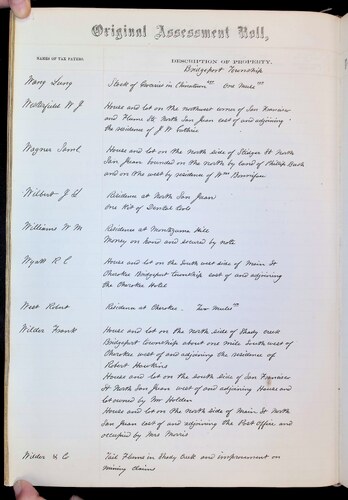 Original Assessment Roll,
NAMES OF TAX PAYERS
DESCRIPTION OF PROPERTY.
Bridgeport Township
Wang Sung Stock of Groceries in Chinatown One Mule
Westerfield W J House and lot on the northwest corner of San Francisco
and Flume Sts North San Juan east of and adjoining
the residence of J W
Wagner Saml House and lot on the north side of St North
San Juan bounded on the north by land of Philip Bush
and on the west by residence of Wm
Wilbut J L Residence at North San Juan
One Kit of Dental tools
Williams W M Residence at Montezuma Hill
Money on hand and secured by note
Wyatt R C House and lot on the South west side of Main St
Cherokee Bridgeport Township east of and adjoining
the Cherokee Hotel
West Robert Residence at Cherokee - Two Mules
Wilder Frank House and lot on the north side of Shady Creek
Bridgeport Township about one mile South west of
Cherokee west of and adjoining the residence of
Robert Hawkins
House and lot on the south side of San Francisco
St North San Juan west of and adjoining House and
lot owned by Mr Holden
House and lot on the north side of Main St North
San Juan east of and adjoining the Post office and
occupied by Mrs Morris
Wilder & Co Tail Flume in Shady Creek and improvement on
mining claims